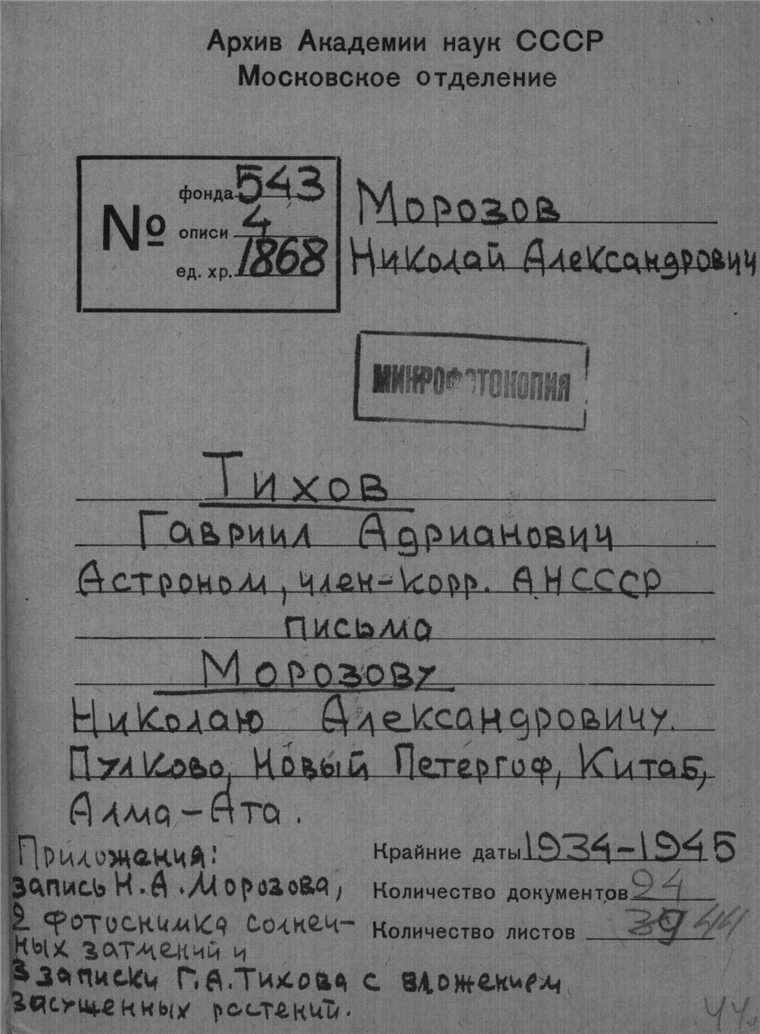 Архив Академии наук СССР
Московское отделение
№
фонда 543
описи 4
ед. хр. 1868
Морозов
Николай Александрович
МИКРОФОТОКОПИЯ
Тихов
Гавриил Адрианович
Астроном, член-корр. АНСССР
письма
Морозову
Николаю Александровичу.
Пулково, Новый Петергоф, Китаб,
Алма-Ата.
Приложения:
запись Н.А.Морозова,
2 фотоснимка солнеч-
ных затмений и
3 записки Г.А.Тихова с вложением
засушенных растений.
Крайние даты 1934-1945
Количество документов 24
Количество листов 39 44
44